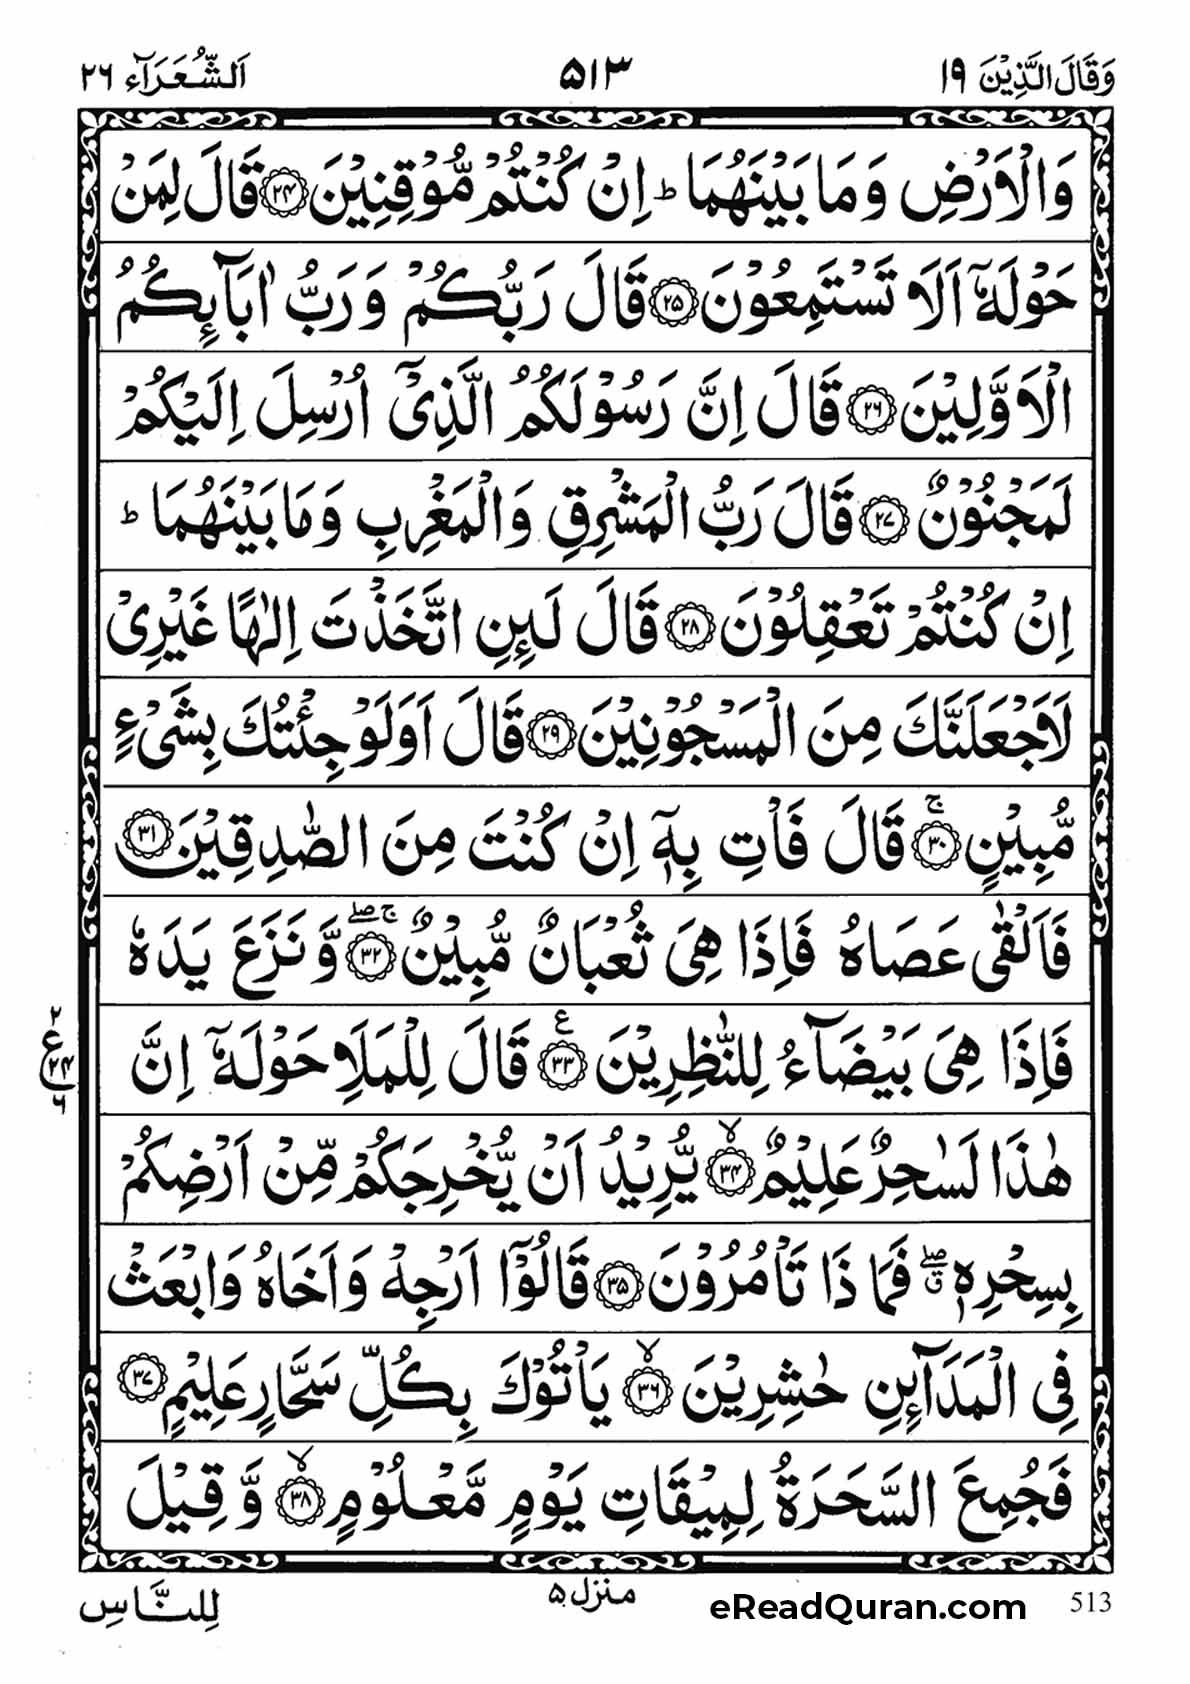 وَقَالَ الَّذِيْنَ ١٩
٥١٣
اَلشُّعَرَآء ٢٦
وَالْاَرْضِ وَمَا بَيْنَهُمَا ؕ اِنْ كُنْتُمْ مُّوْقِنِيْنَ ﴿۲۴﴾ قَالَ لِمَنْ
حَوْلَهٗۤ اَلَا تَسْتَمِعُوْنَ ﴿۲۵﴾ قَالَ رَبُّكُمْ وَرَبُّ اٰبَآىِٕكُمُ
الْاَوَّلِيْنَ ﴿۲۶﴾ قَالَ اِنَّ رَسُوْلَكُمُ الَّذِيْۤ اُرْسِلَ اِلَيْكُمْ
لَمَجْنُوْنٌ ﴿۲۷﴾ قَالَ رَبُّ الْمَشْرِقِ وَالْمَغْرِبِ وَمَا بَيْنَهُمَا ؕ
اِنْ كُنْتُمْ تَعْقِلُوْنَ ﴿۲۸﴾ قَالَ لَىِٕنِ اتَّخَذْتَ اِلٰهًا غَيْرِيْ
لَاَجْعَلَنَّكَ مِنَ الْمَسْجُوْنِيْنَ ﴿۲۹﴾ قَالَ اَوَلَوْ جِئْتُكَ بِشَيْءٍ
مُّبِيْنٍ ۚ﴿۳۰﴾ قَالَ فَاْتِ بِهٖۤ اِنْ كُنْتَ مِنَ الصّٰدِقِيْنَ ﴿۳۱﴾
فَاَلْقٰى عَصَاهُ فَاِذَا هِيَ ثُعْبَانٌ مُّبِيْنٌ ۚۖ﴿۳۲﴾ وَّنَزَعَ يَدَهٗ
فَاِذَا هِيَ بَيْضَآءُ لِلنّٰظِرِيْنَ ﴿۳۳﴾ ع قَالَ لِلْمَلَاِ حَوْلَهٗۤ اِنَّ
٢
ع
٢٤
٦
هٰذَا لَسٰحِرٌ عَلِيْمٌ ۙ﴿۳۴﴾ يُّرِيْدُ اَنْ يُّخْرِجَكُمْ مِّنْ اَرْضِكُمْ
بِسِحْرِهٖ ۖۗ فَمَا ذَا تَاْمُرُوْنَ ﴿۳۵﴾ قَالُوْۤا اَرْجِهْ وَاَخَاهُ وَابْعَثْ
فِي الْمَدَآىِٕنِ حٰشِرِيْنَ ۙ﴿۳۶﴾ يَاْتُوْكَ بِكُلِّ سَحَّارٍ عَلِيْمٍ ﴿۳۷﴾
فَجُمِعَ السَّحَرَةُ لِمِيْقَاتِ يَوْمٍ مَّعْلُوْمٍ ۙ﴿۳۸﴾ وَّقِيْلَ
لِلنَّاسِ
منزل ۵
eReadQuran.com
513